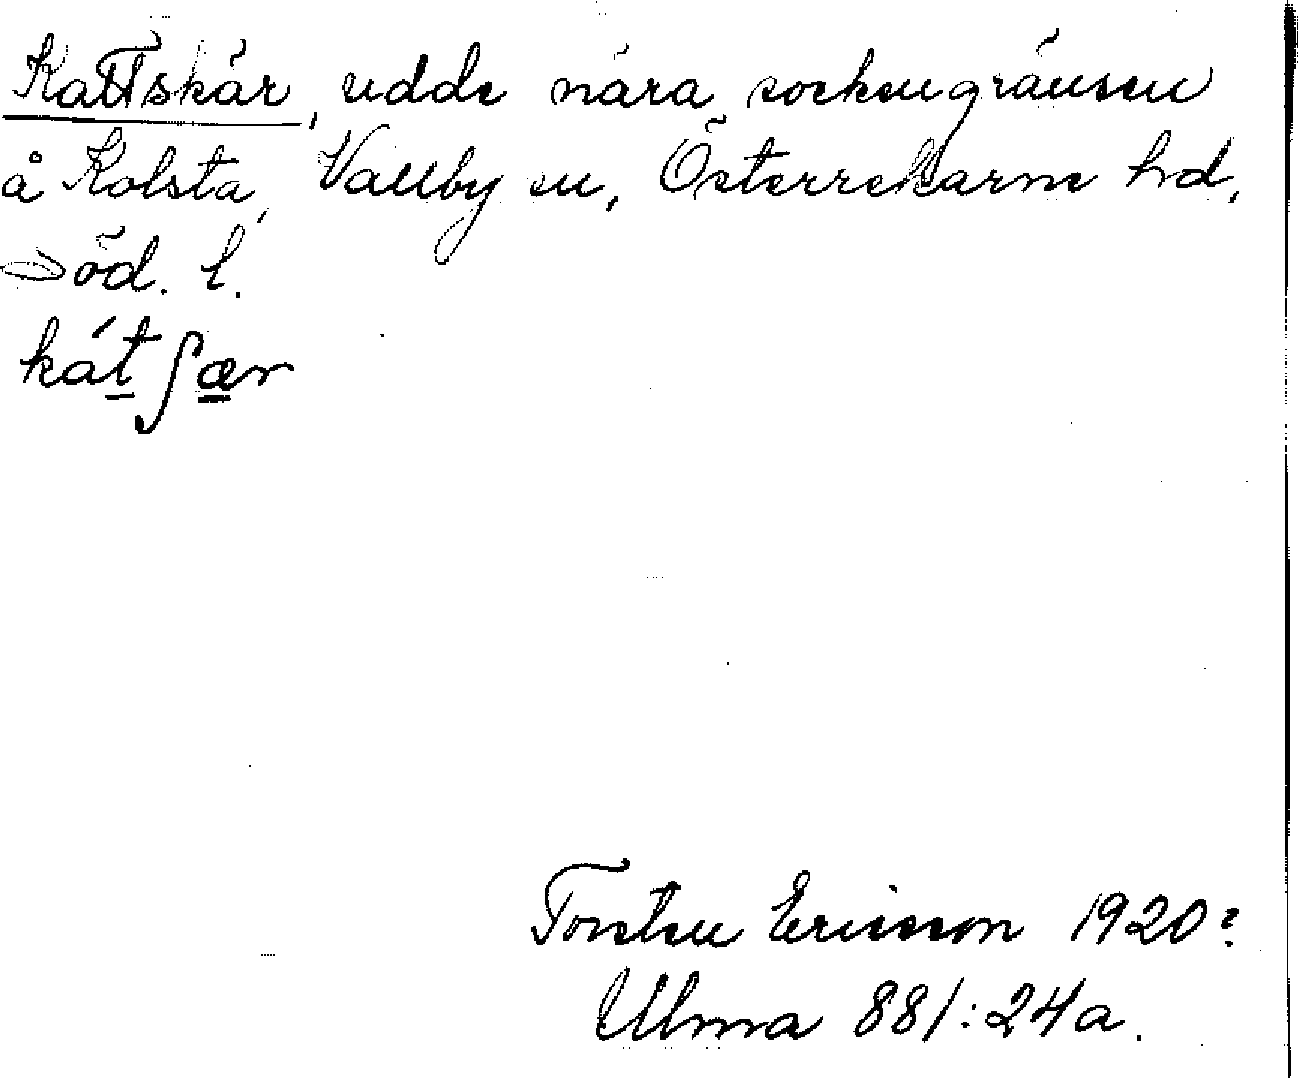 Kattskär, udde nära sockengränsen
å Kolsta, Vallby sn, Österrekarne hd,
Söd. l.
kát̲ʃæ̲r
Torsten Ericsson 1920?
Ulma 881:24a.